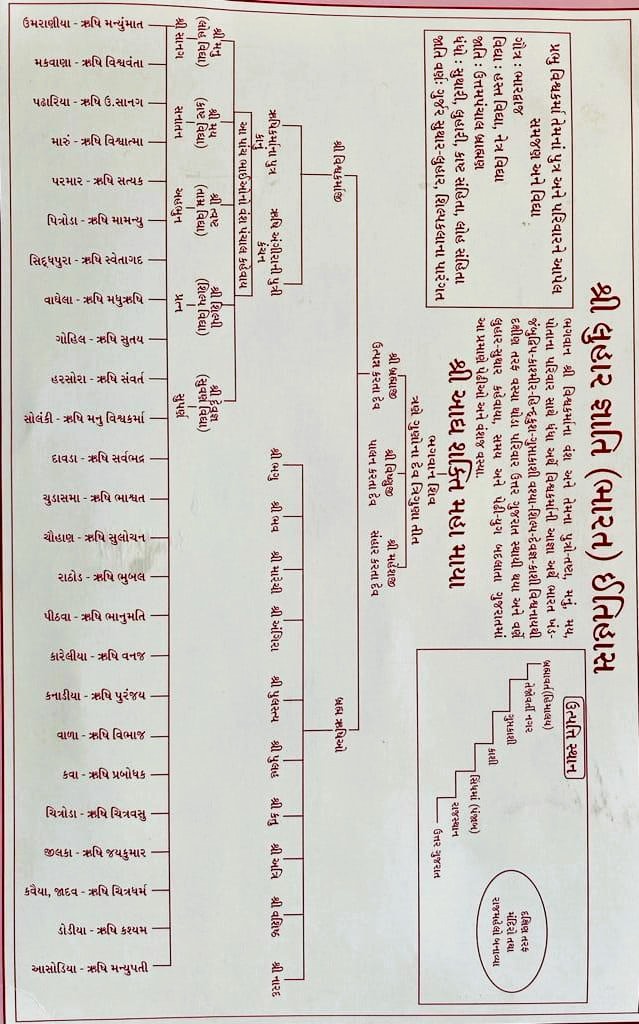 શ્રી લુહાર જ્ઞાતિ (ભારત) ઈતિહાસ
ભગવાન શ્રી વિશ્વકર્માના વંશ અને તેમના પુત્રો-ત્વષ્ટા, મનું, મય,
પોતાના પરિવાર સાથે ધંધા અર્થે વિશ્વકર્માની આજ્ઞા અર્થે ભારત ખંડ-
જંબુદ્વિપ-કાશ્મીર-હિન્દુકુશ-ગુપ્તકાશી વસ્યા-શિલ્પ-દેવજ્ઞ-કાશી વિશ્વનાથથી
દક્ષીણ તરફ વસ્યા થોડા પરિવાર ઉત્તર ગુજરાત સ્થાયી થયા અને વર્ણે
લુહાર-સુથાર કહેવાયા, સમય અને પેઢી-યુગ બદલાતા ગુજરાતમાં
આ પ્રમાણે પેઢીઓ અને વંશજ વસ્યા.
પ્રભુ વિશ્વકર્મા તેમનાં પુત્ર અને પરિવારને આપેલ
સમજણ અને વિદ્યા
ગૌત્ર : ભારદ્વાજ
વિદ્યા : હસ્ત વિદ્યા, નેત્ર વિદ્યા
જાતિ : ઉત્તમપંચાલ બ્રાહ્મણ
ધંધો : સુથારી, લુહારી, કાષ્ટ સંહિતા, લોહ સંહિતા
જાતિ વર્ણ: ગુર્જર સુથાર-લુહાર, શિલ્પકલાના પારંગત
ઉત્પત્તિ સ્થાન
બ્રહ્માવર્ત(હિમાલય)
તેજોવતી નગર
ગુપ્તકાશી
કાશી
સિંધમાં (પંજાબ)
રાજસ્થાન
ઉત્તર ગુજરાત
દક્ષિણ તરફ
મંદિરો તથા
રાજમહેલો બનાવ્યા
શ્રી આદ્ય શક્તિ મહા માયા
ભગવાન શિવ
ત્રણે ગુણોના દેવ ત્રિગુણા તીત
શ્રી બ્રહ્માજી
ઉત્પન્ન કરતા દેવ
શ્રી વિષ્ણુજી
પાલન કરતા દેવ
શ્રી મહેશજી
સંહાર કરતા દેવ
શ્રી વિશ્વકર્માજી
બ્રહ્મ ઋષિઓ
ઋષિકર્માના પુત્ર
ઋષિ અંગીરાની પુત્રી
કંચન
આ પાંચ ભાઈઓનો વંશ પંચાલ કહેવાય
શ્રી મનુ
(લોહ વિદ્યા)
શ્રી સાનગ
શ્રી મય
(કાષ્ટ વિદ્યા)
સનાતન
શ્રી ત્વષ્ટ
(તામ્ર વિદ્યા)
અહભુન
શ્રી શિલ્પી
(શિલ્પ વિદ્યા)
પ્રત્ન
શ્રી દેવજ્ઞ
(સુવર્ણ વિદ્યા)
સુપર્ણ
શ્રી ભગુ
શ્રી ભવ
શ્રી મારેચી
શ્રી અંગિરા
શ્રી પુલસ્ત્ય
શ્રી પુલહ
શ્રી ક્રતુ
શ્રી અત્રિ
શ્રી વશિષ્ઠ
શ્રી નારદ
ઉમરાણીયા - ઋષિ મન્યુંમાત
મકવાણા - ઋષિ વિશ્વવંતા
પઢારિયા - ઋષિ ઉ.સાનગ
મારું - ઋષિ વિશ્વાત્મા
પરમાર - ઋષિ સત્યક
પિત્રોડા - ઋષિ મામન્યુ
સિદ્ધપુરા - ઋષિ સ્વેતાગદ
વાઘેલા - ઋષિ મધુઋષિ
ગોહિલ - ઋષિ સુતય
હરસોરા - ઋષિ સંવર્ત
સોલંકી - ઋષિ મનુ વિશ્વકર્મા
દાવડા - ઋષિ સર્વભદ્ર
ચુડાસમા - ઋષિ ભાશ્વત
ચૌહાણ - ઋષિ સુલોચન
રાઠોડ - ઋષિ ભુબલ
પીઠવા - ઋષિ ભાનુમતિ
કારેલીયા - ઋષિ વનજ
કનાડીયા - ઋષિ પુરંજય
વાળા - ઋષિ વિભાજ
કવા - ઋષિ પ્રબોધક
ચિત્રોડા - ઋષિ ચિત્રવસુ
જીલકા - ઋષિ જયકુમાર
કવૈયા, જાદવ - ઋષિ ચિત્રધર્મ
ડોડીયા - ઋષિ કશ્યમ
આસોડિયા - ઋષિ મન્યુપતી